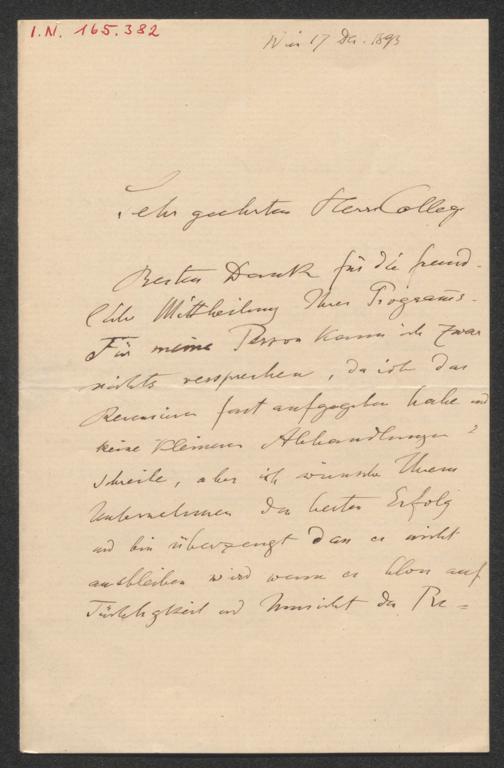 I.N. 165.382
Wien 17 Dec. 1893
Sehr geehrter Herr College
Besten Dank für die freund-
liche Mittheilung Ihres Programms.
Für meine Person kann ich zwar
nichts versprechen, da ich das
Recensiren fast aufgegeben habe und
keine kleineren Abhandlungen
schreibe, aber ich wünsche Ihrem
Unternehmen den besten Erfolg
und bin überzeugt dass er nicht
ausbleiben wird wenn es blos auf
Tüchtigkeit und Umsicht der Re=